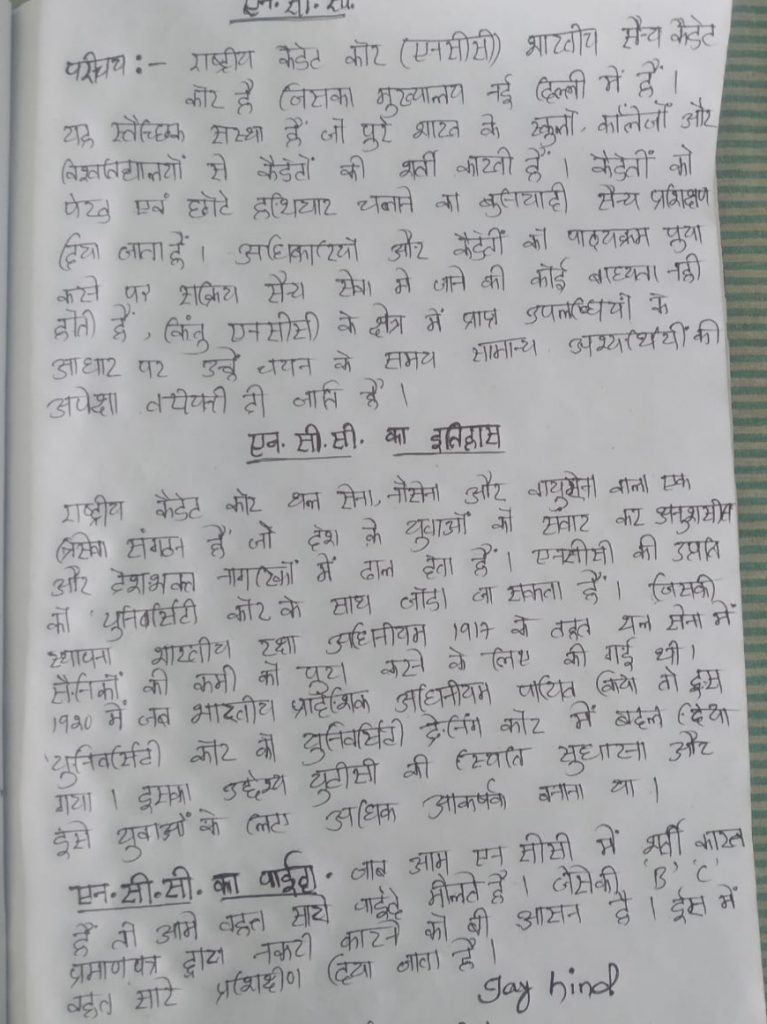 एन. सी. सी.
परिचय :- राष्ट्रीय कैडेट कोर (एनसीसी) भारतीय सैन्य कैडेट
कोर है जिसका मुख्यालय नई दिल्ली में हैं ।
यह स्वैच्छिक संस्था हैं जो पुरे भारत के स्कुलों, कॉलेजों और
विश्वविद्यालयों से कैडेटों की भर्ती कारती हैं । कैडेतों को
पेरेड एवं छोटे हथियार चलाने का बुनियादी सैन्य प्रशिक्षण
दिया जाता हैं । अधिकारियों और कैडेतों को पाठ्यक्रम पुरा
करने पर सक्रिय सैन्य सेवा मे जाने की कोई बाध्यता नही
होती हैं, किंतु एनसीसी के क्षेत्र में प्राप्त उपलब्धियों के
आधार पर उन्हें चयन के समय सामान्य अभ्यर्थियों की
अपेक्षा वरीयता दी जाति हैं ।
एन. सी. सी. का इतिहास
राष्ट्रीय कैडेट कोर थल सेना, नौसेना और वायुसेना वाला एक
त्रिसेवा संगठन हैं जो देश के युवाओं को संवार कर अनुशासीत
और देशभक्त नागरिकों में ढाल देता हैं । एनसीसी की उत्पति
को 'युनिवर्सिटी कोर के साथ जोडा जा सकता हैं । जिसकी
स्थापना भारतीय रक्षा अधिनीयम 1917 के तहत थल सेना में
सैनिकों की कमी को पुरा करने के लिए की गई थी ।
1920 में जब भारतीय प्रादेशिक अधिनीयम पारित किया तो इस
'युनिवर्सिटी कोर को युनिवर्सिटी ट्रेनिंग कोर में बदल दिया
गया । इसका उद्देश्य युटीसी की स्थिति सुधारना और
इसे युवाओं के लिए अधिक आकर्षक बनाना था ।
एन. सी. सी. का फाईदा. जब आम एन सीसी में भर्ती कारत
हैं तो आमे बहुत सारे फाईदे मीलते हैं । जेसेकी 'B' 'C'
प्रमाणपत्र द्वारा नकरी कारने को बी आसन हैं । ईस में
बहुत सारे प्रशिक्षीण दिया जाता हैं ।
Jay hind